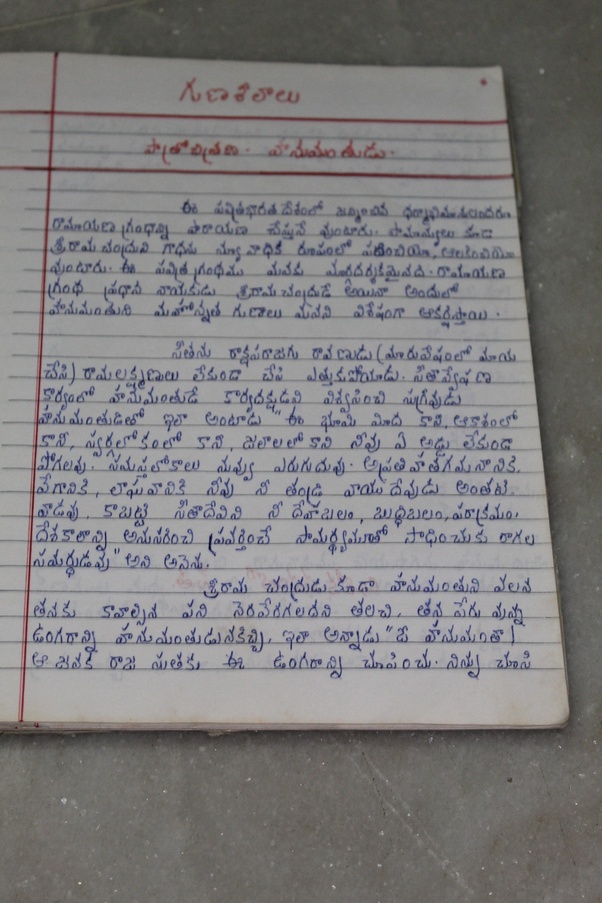 గుణశీలాలు
పాత్రోచిత్రణ - హనుమంతుడు.
ఈ పవిత్రభారత దేశంలో జన్మించిన ధర్మాభిమానులందరూ
రామాయణ గ్రంథాన్ని పారాయణ చేస్తునే వుంటారు. సామాన్యులు కూడ
శ్రీరామ చంద్రుని గాధను న్యూనాధిక రూపంలో పఠించియో, ఆలకించియో
వుంటారు. ఈ పవిత్ర గ్రంథము మనకు మార్గదర్శకమైనది. రామాయణ
గ్రంథ ప్రధాన నాయకుడు శ్రీరామ చంద్రుడే అయినా అందులో
హనుమంతుని మహోన్నత గుణాలు మనని విశేషంగా ఆకర్షిస్తాయి.
సీతను రాక్షసరాజగు రావణుడు (మారువేషంలో మాయ
చేసి) రామలక్ష్మణులు లేకుండా చేసి ఎత్తుకుపోయాడు. సీతాన్వేషణ
కార్యంలో హనుమంతుడే కార్యదక్షుడని విశ్వసించి సుగ్రీవుడు
హనుమంతుడితో ఇలా అంటాడు "ఈ భూమి మీద కానీ, ఆకాశంలో
కానీ, స్వర్గలోకంలో కానీ, జలాలలో కాని నీవు ఏ అడ్డు లేకుండా
పోగలవు. సమస్తలోకాలు నువ్వు ఎరుగుదువు. అప్రతిహతగమనానికి,
వేగానికి, లాఘవానికి నీవు నీ తండ్రి వాయుదేవుడు అంతటి
వాడవు. కాబట్టి సీతాదేవిని నీ దేహబలం, బుద్ధిబలం, పరాక్రమం,
దేశకాలాన్ని అనుసరించి ప్రవర్తించే సామర్థ్యముతో సాధించుకు రాగల
సమర్థుడవు" అని అనెను.
శ్రీరామ చంద్రుడు కూడా హనుమంతుని వలన
తనకు కావాల్సిన పని నెరవేరగలదని తలచి, తన పేరు వున్న
ఉంగరాన్ని హనుమంతుడునకిచ్చి, ఇలా అన్నాడు "ఓ హనుమంతా!
ఆ జనక రాజ సుతకు ఈ ఉంగరాన్ని చూపించు. నిన్ను చూసి